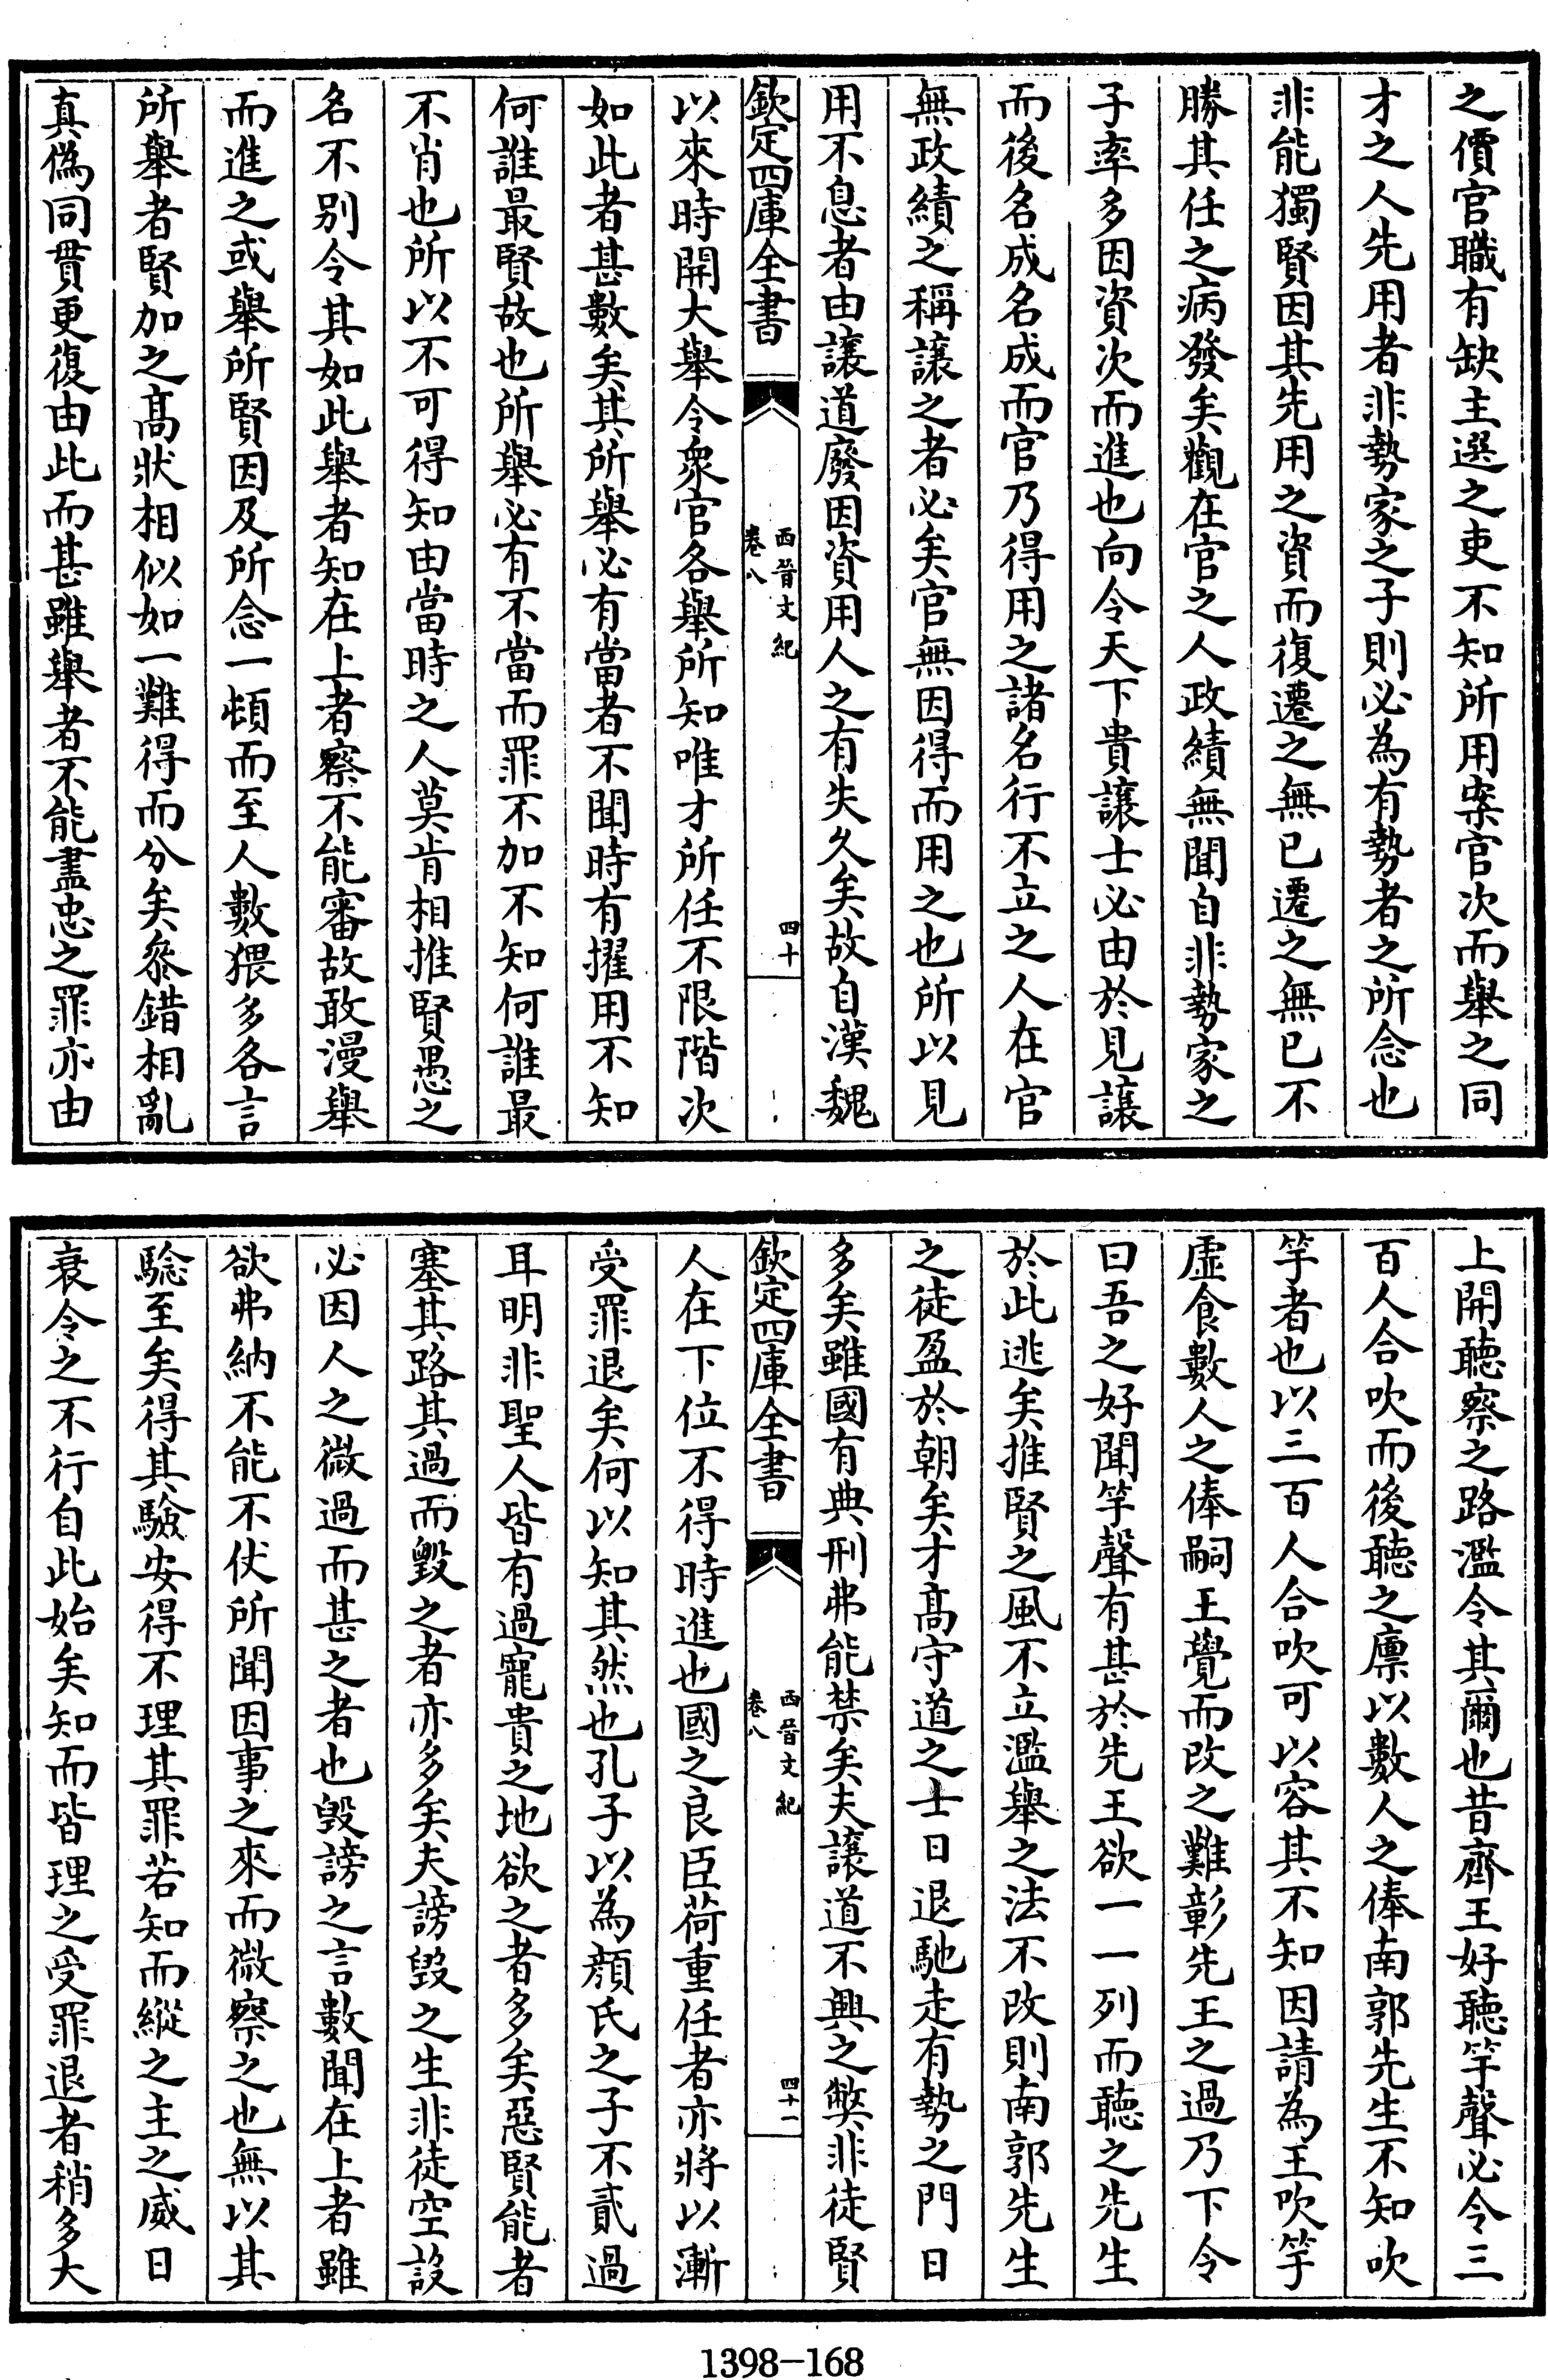 之價官職有缺主選之吏不知所用案官次而舉之同
才之人先用者非勢家之子則必為有勢者之所念也
非能獨賢因其先用之資而復遷之無已遷之無已不
勝其任之病發矣觀在官之人政績無聞自非勢家之
子率多因資次而進也向令天下貴讓士必由於見讓
而後名成名成而官乃得用之諸名行不立之人在官
無政績之稱讓之者必矣官無因得而用之也所以見
用不息者由讓道廢因資用人之有失久矣故自漢魏
欽定四庫全書
西晉文紀
卷八
四十
以來時開大舉令衆官各舉所知唯才所任不限階次
如此者甚數矣其所舉必有當者不聞時有擢用不知
何誰最賢故也所舉必有不當而罪不加不知何誰最
不肖也所以不可得知由當時之人莫肯相推賢愚之
名不別令其如此舉者知在上者察不能審故敢漫舉
而進之或舉所賢因及所念一頓而至人數猥多各言
所舉者賢加之髙狀相似如一難得而分矣叅錯相亂
真偽同貫更復由此而甚雖舉者不能盡忠之罪亦由
上開聽察之路濫令其爾也昔齊王好聽竽聲必令三
百人合吹而後聽之廪以數人之俸南郭先生不知吹
竽者也以三百人合吹可以容其不知因請為王吹竽
虛食數人之俸嗣王覺而改之難彰先王之過乃下令
曰吾之好聞竽聲有甚於先王欲一一列而聽之先生
於此逃矣推賢之風不立濫舉之法不改則南郭先生
之徒盈於朝矣才髙守道之士日退馳走有勢之門日
多矣雖國有典刑弗能禁矣夫讓道不興之弊非徒賢
欽定四庫全書
西晉文紀
卷八
四十一
人在下位不得時進也國之良臣荷重任者亦將以漸
受罪退矣何以知其然也孔子以為顏氏之子不貳過
耳明非聖人皆有過寵貴之地欲之者多矣惡賢能者
塞其路其過而毀之者亦多矣夫謗毀之生非徒空設
必因人之微過而甚之者也毀謗之言數聞在上者雖
欲弗納不能不伏所聞因事之來而微察之也無以其
驗至矣得其驗安得不理其罪若知而縱之主之威日
衰令之不行自此始矣知而皆理之受罪退者稍多大
1398-168